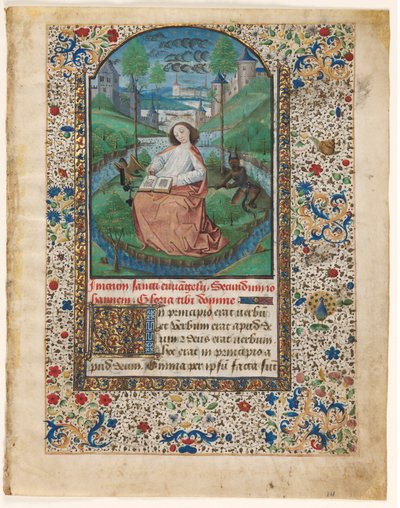 Inicium sancti euvangelij. Secundum io
hannem. Gloria tibi domine
In principio erat uerbu
et verbum erat apud de
um et deus erat uerbum
hoc erat in principio a
pud deum. Omnia per ipsu facta sut